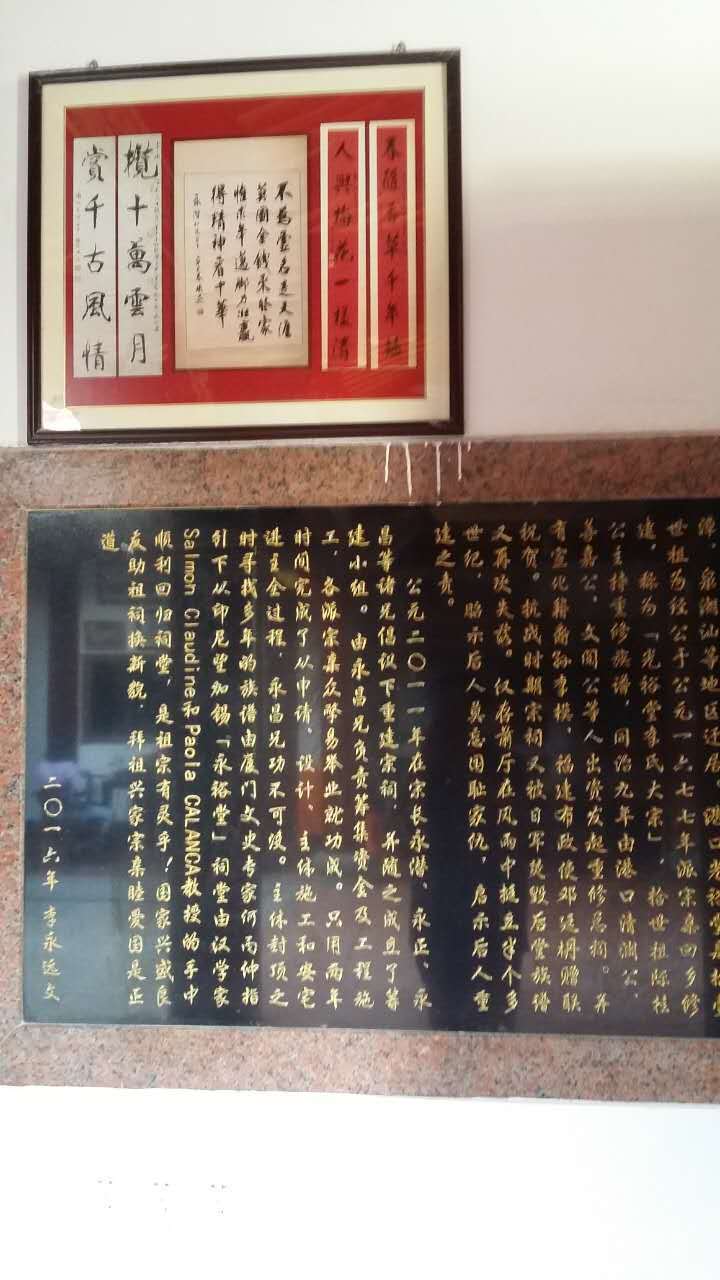 人與梅花一樣清
不為虛名走天涯
惟求年邁腳力壯贏
得精神看中華
攬十萬雲月
賞千古風情
世祖为経公于公元一六七七年派宗亲回乡修
建，称为「光裕堂李氏大宗」，拾世祖际核
公主持重修族谱，同治九年由港口清渊公、
善嘉公、文阁公等人出资发起重修总祠。并
有宣化籍裔孙李模，福建布政使邓廷枬赠联
祝贺。抗战时期宗祠又被日军焚毁后堂族谱
又再次失落。仅存前厅在风雨中挺立半个多
世纪，昭示后人莫忘国耻家仇，启示后人重
建之责。
公元二〇一一年在宗长永潜、永正、永
昌等诸兄倡议下重建宗祠，并随之成立了筹
建小组。由永昌兄负责筹集资金及工程施
工，各派宗亲众擎易举业就功成。只用两年
时间完成了从申请、设计、主体施工和安宅
进主全过程，永昌兄功不可没。主体封顶之
时寻找多年的族谱由厦门文史专家何丙仲指
引下从印尼望加锡「永裕堂」祠堂由汉学家
Salmon Claudine和Paola CALANCA教授的手中
顺利回归祠堂，是祖宗有灵乎！国家兴盛良
友助祖祠换新貌，拜祖兴家宗亲睦爱国是正
道
二〇一六年 李永远文